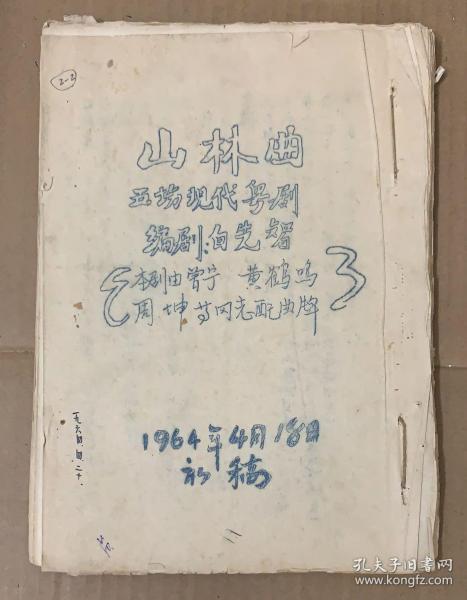 2-2
山林曲
五场现代粤剧
编剧:白先智
本剧由曾宁 黄鹤鸣
周坤等同志配曲牌
1964年4月18日
初稿
一九六四.四.二十.
孔夫子旧书网
www.kongfz.com